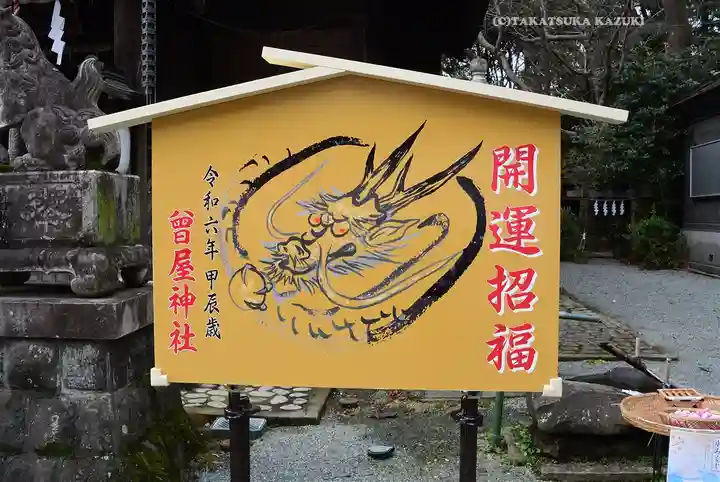 (C)TAKATSUKA KAZUKI
開運招福
令和六年 甲辰歳
曾屋神社